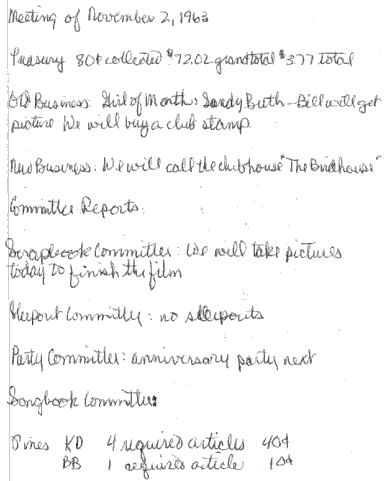 Meeting of November 2, 1963
Treasury 80¢ collected $72.02 grand total $3.77 total
Old Business: Girl of Month: Sandy Buth - Bill will get
picture We will buy a club stamp
New Business: We will call the clubhouse "The Birdhouse"
Committee Reports:
Scrapbook Committee: We will take pictures
today to finish the film
Sleepout Committee: no sleepouts
Party Committee: anniversary party next
Songbook Committee:
Fines KD 4 required articles 40¢
BB 1 required article 10¢